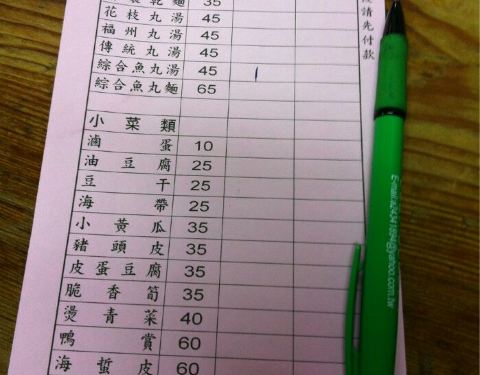 乾麵 35
花枝丸湯 45
福州丸湯 45
傳統丸湯 45
綜合魚丸湯 45
綜合魚丸麵 65
小菜類
滷蛋 10
油豆腐 25
豆干 25
海帶 25
小黃瓜 35
豬頭皮 35
皮蛋豆腐 35
脆香筍 35
燙青菜 40
鴨賞 60
海蜇皮 60
請先付款